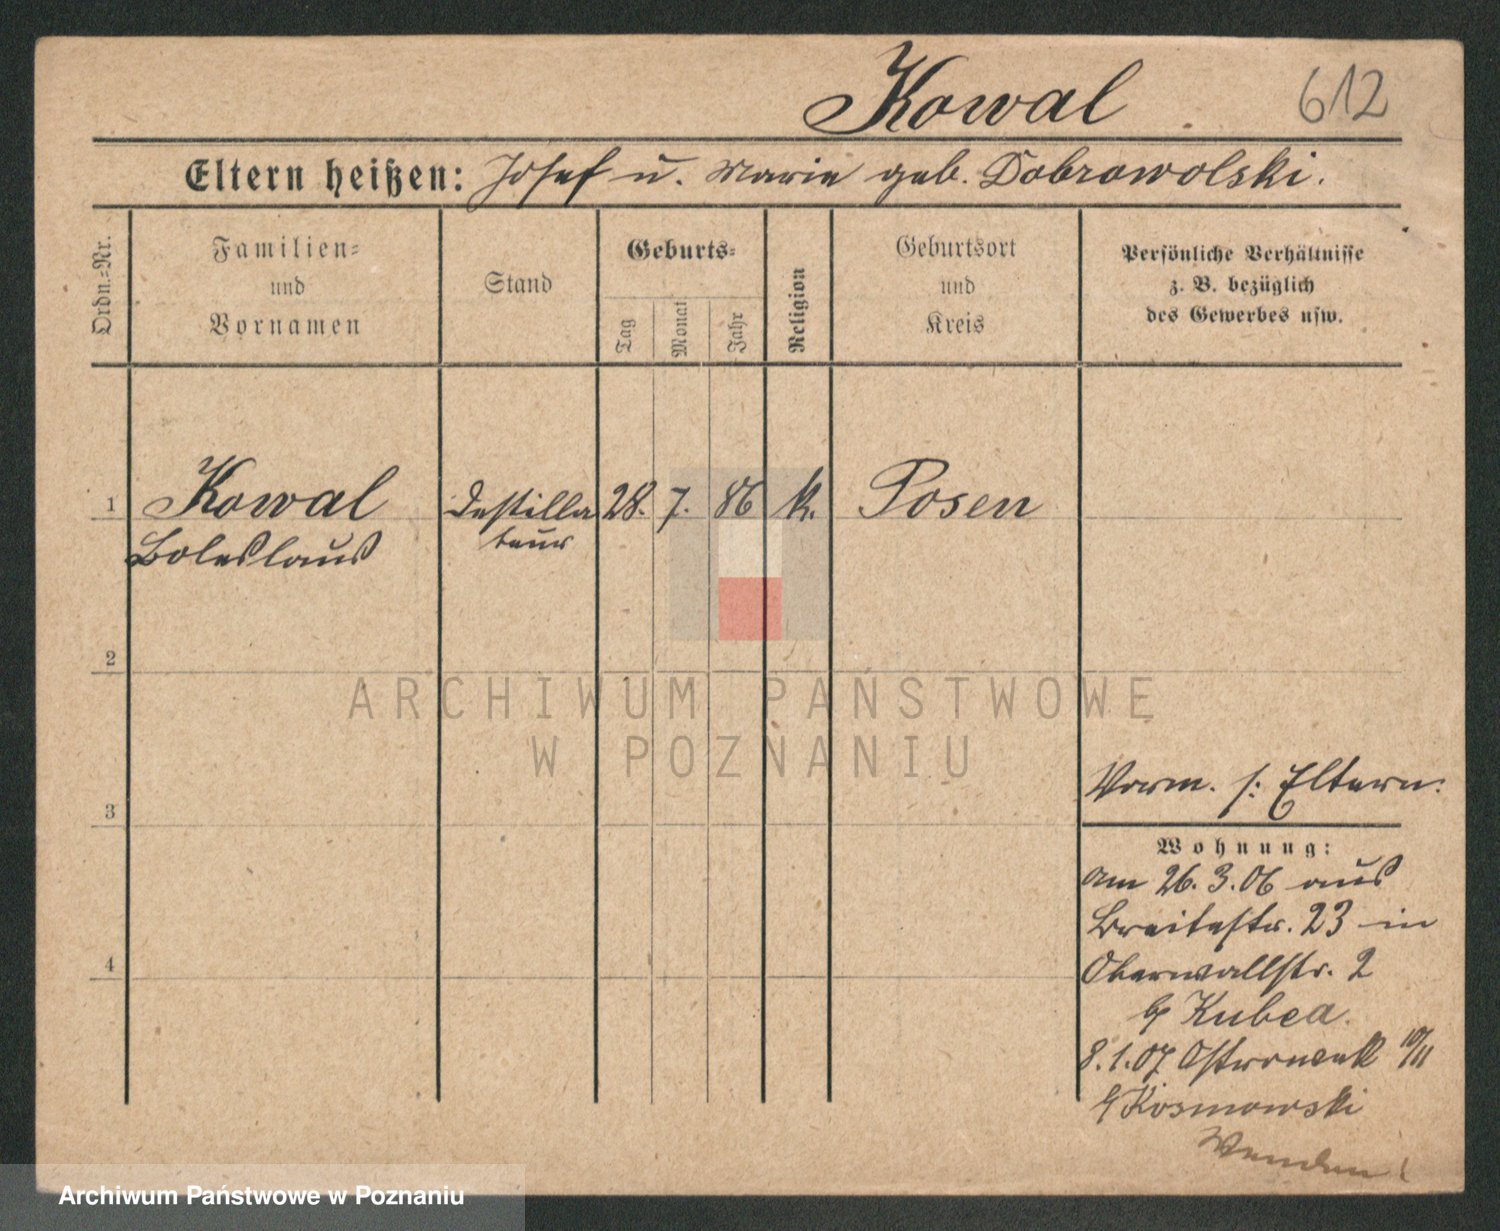 Kowal
612
Eltern heißen: Josef u. Marie geb. Dobrowolski.
Ordn.-Nr.
Familien-
und
Vornamen
Stand
Geburts-
Tag
Monat
Jahr
Religion
Geburtsort
und
Kreis
Persönliche Verhältnisse
z. B. bezüglich
des Gewerbes usw.
1
Kowal
Boleslaus
Destilla
teur
28. 7. 86
k.
Posen
2
ARCHIWUM PAŃSTWOWE
W POZNANIU
3
Vorm. s: Eltern:
Wohnung:
am 26.3.06 aus
Breitestr. 23 in
Oberwallstr. 2
b/ Kubea.
4
8.1.07 Ostrowek 10/11
b/ Kosmowski
Wenden!
Archiwum Państwowe w Poznaniu